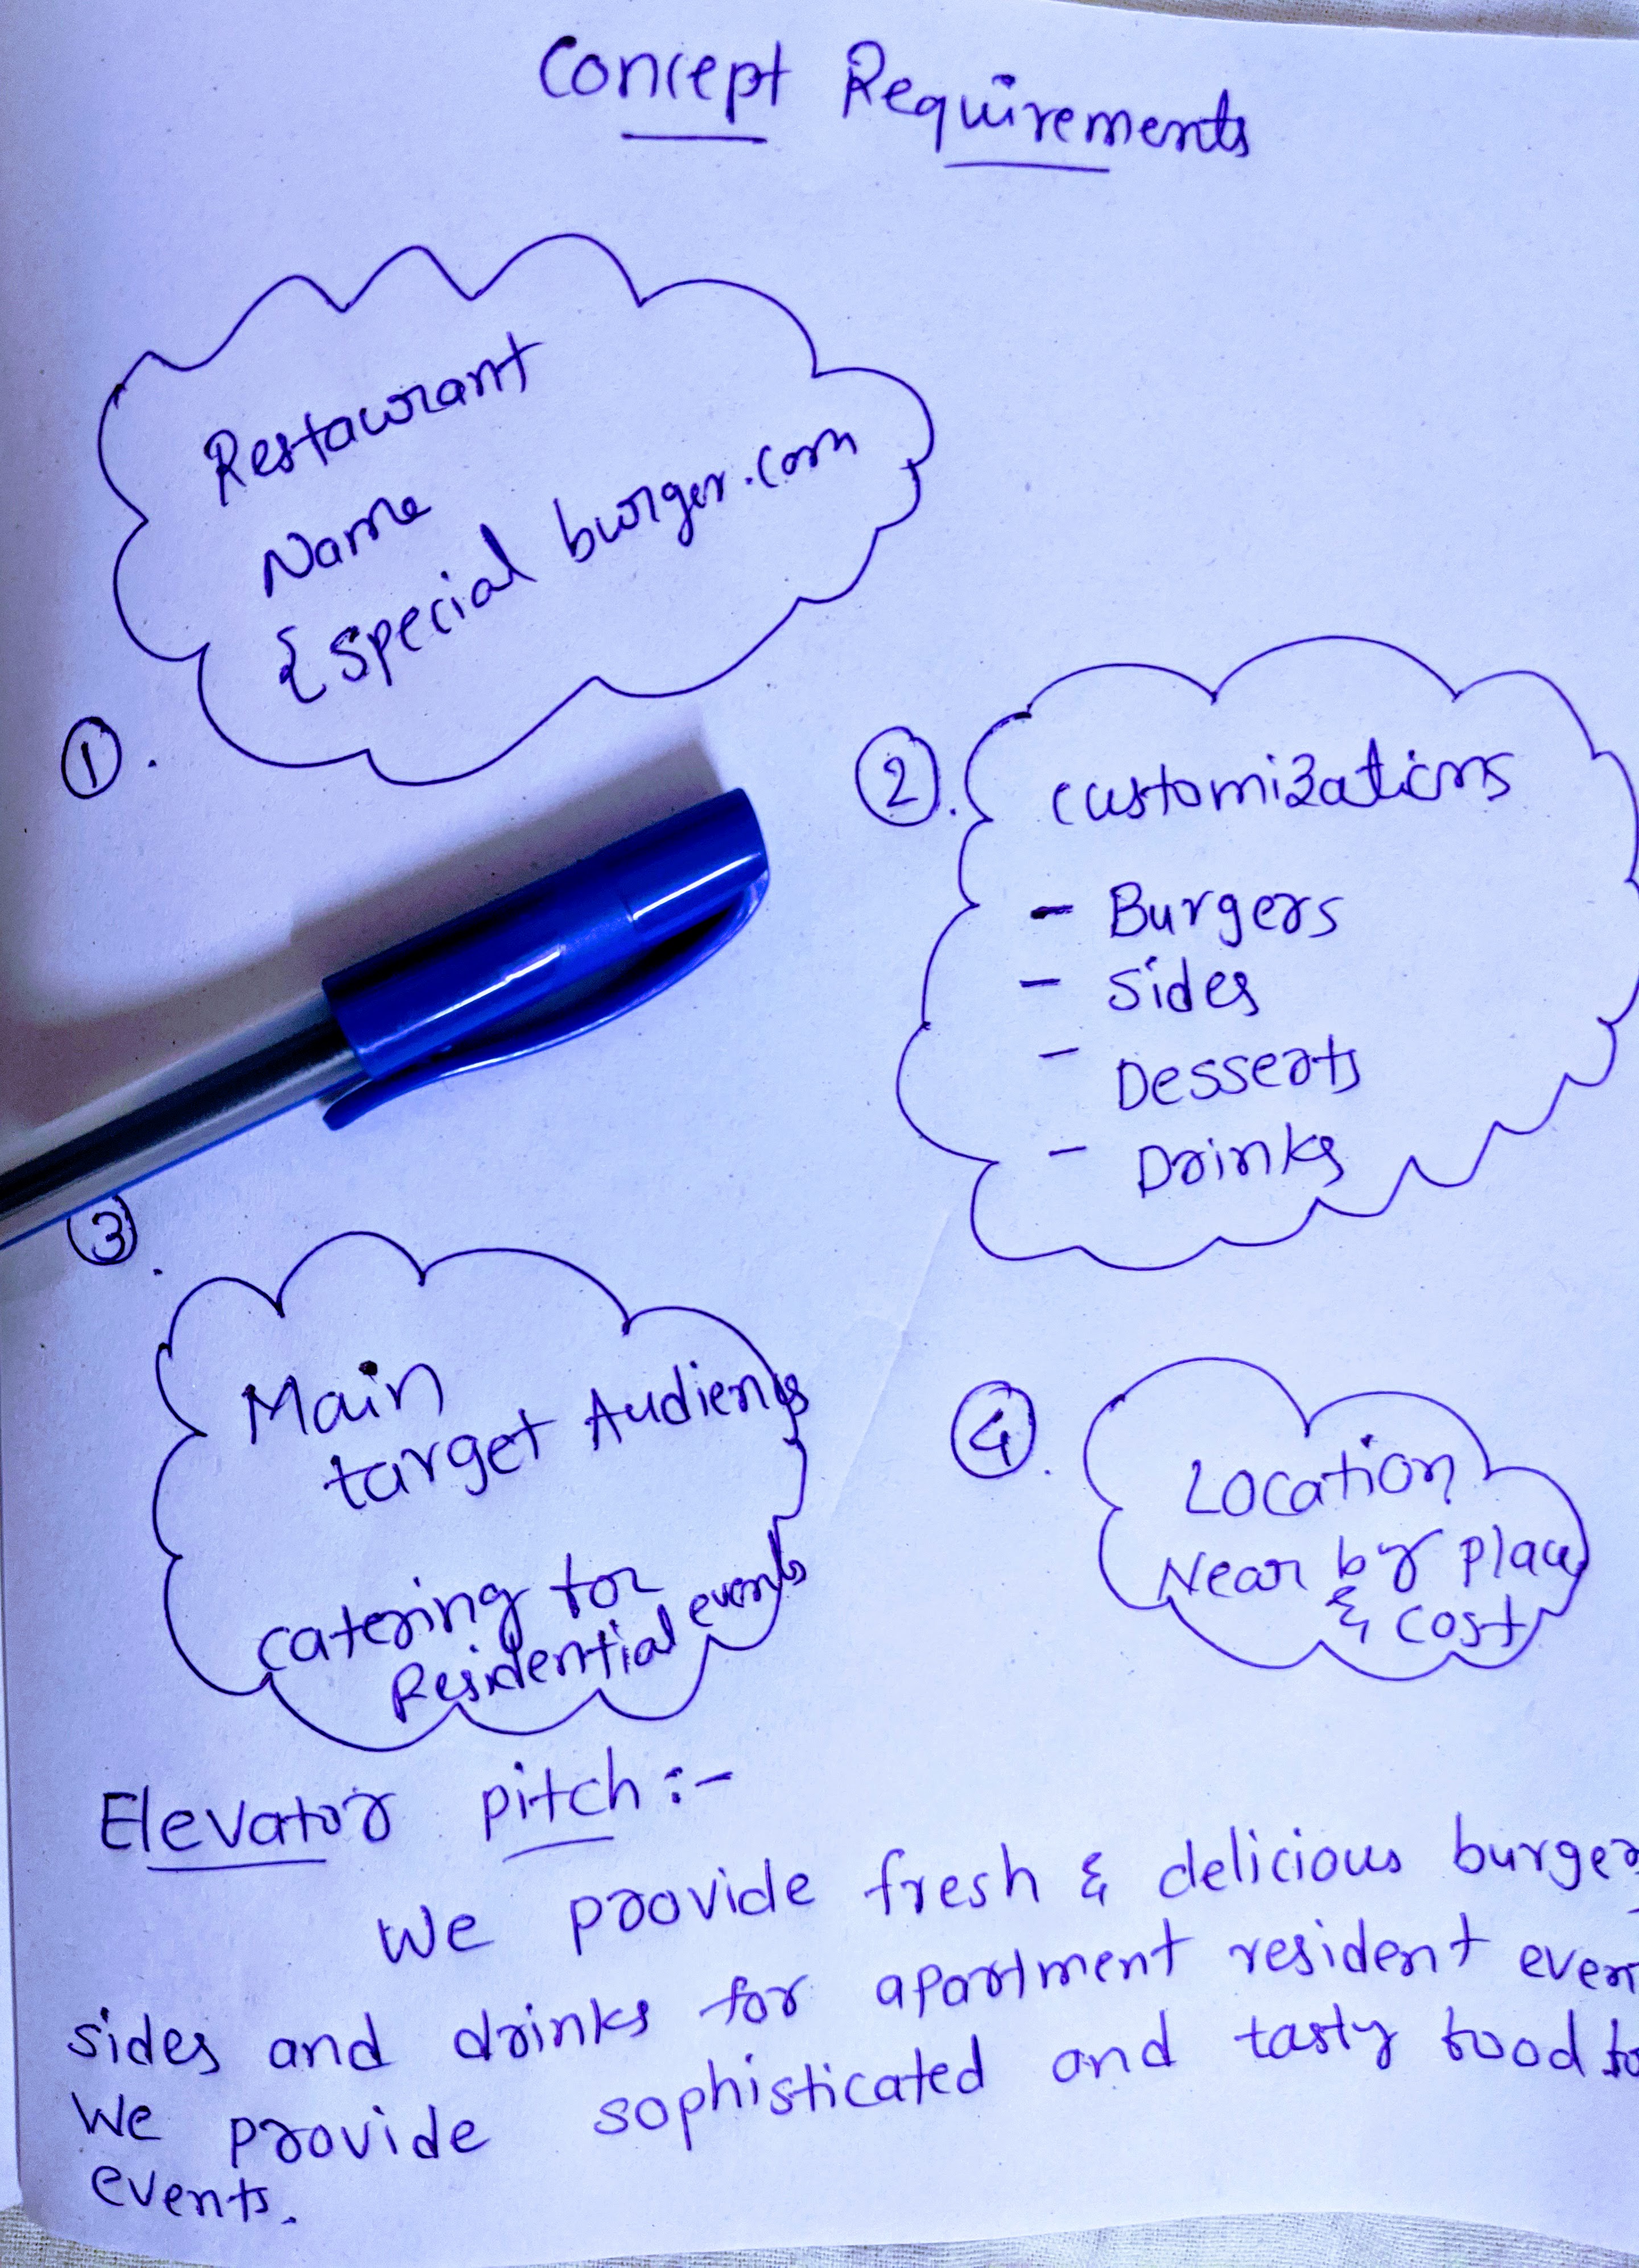 Concept Requirements
①.
Restaurant
Name
{special burger.com
②.
customizations
- Burgers
- sides
- Desserts
- Drinks
③.
Main
target Audience
catering for
Residential events
④.
Location
Near by place
& cost
Elevator pitch:-
We provide fresh & delicious burger
sides and drinks for apartment resident even
We provide sophisticated and tasty food
events.